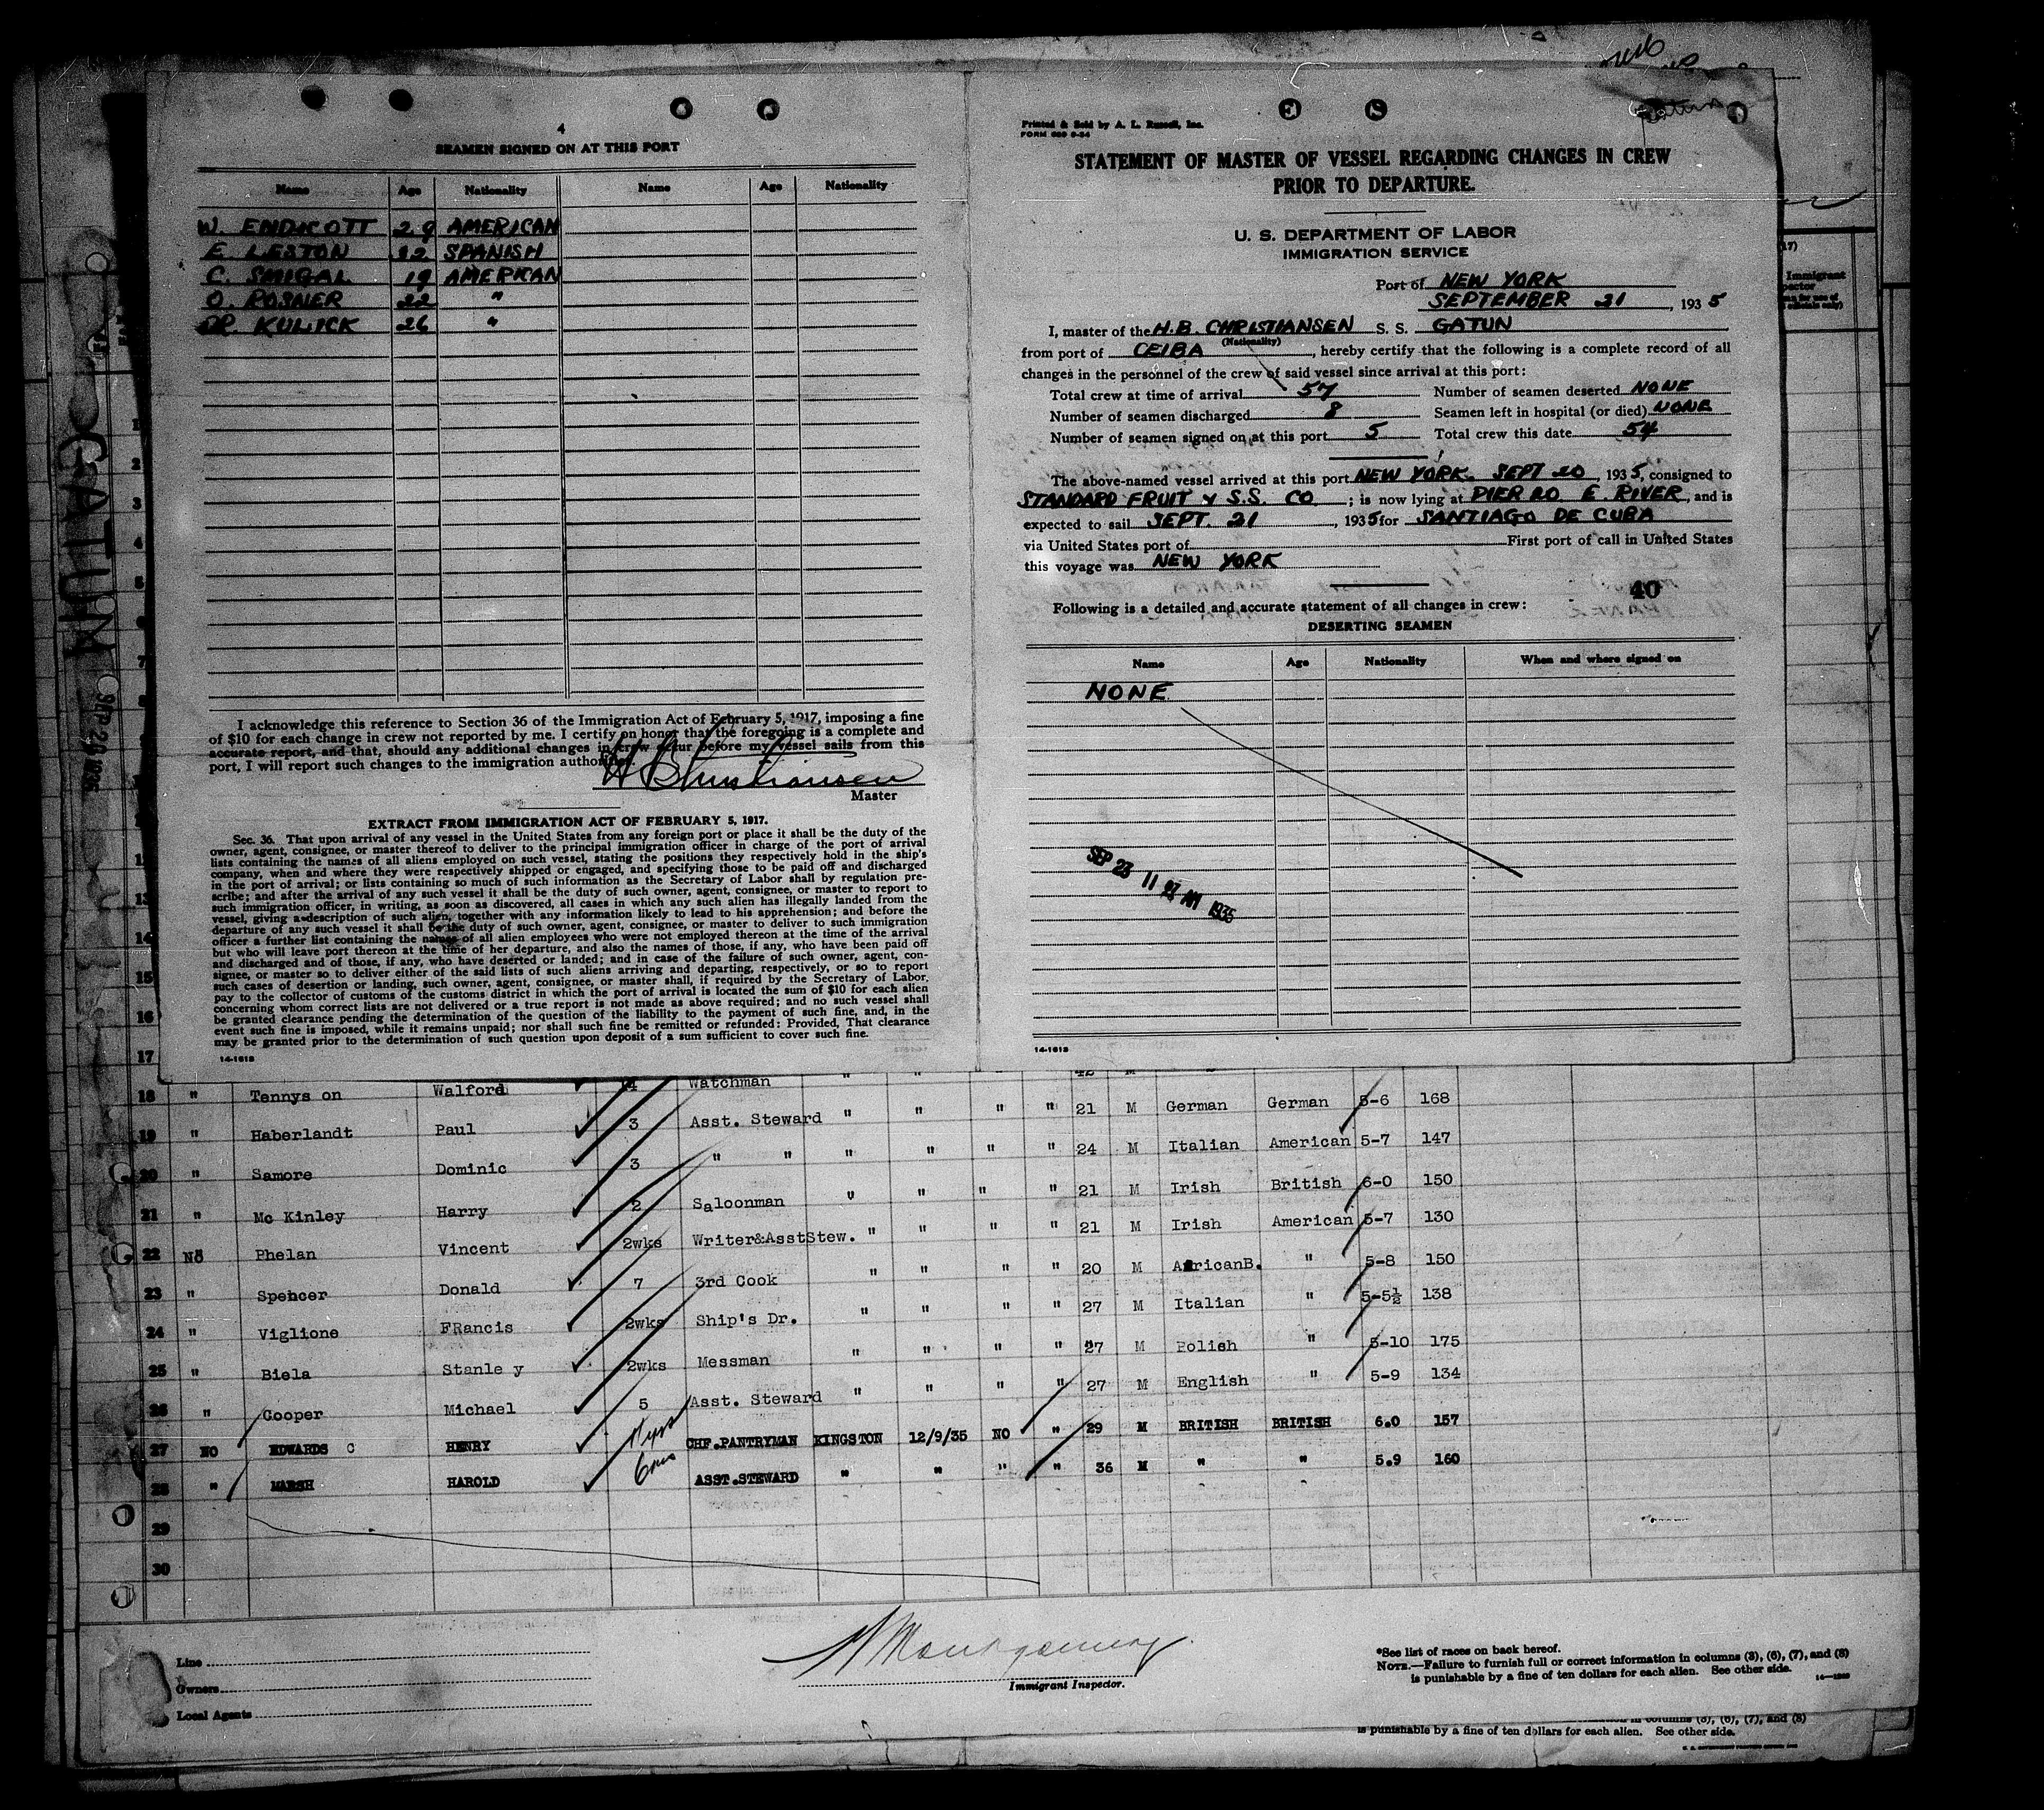 4
SEAMEN SIGNED ON AT THIS PORT
Name Age Nationality Name Age Nationality
W. ENDICOTT 29 AMERICAN
E. LESTON 32 SPANISH
C. SMIGAL 19 AMERICAN
O. ROSNER 22 "
KULICK 26 "
I acknowledge this reference to Section 36 of the Immigration Act of February 5, 1917, imposing a fine
of $10 for each change in crew not reported by me. I certify on honor that the foregoing is a complete and
accurate report, and that, should any additional changes in crew occur before my vessel sails from this
port, I will report such changes to the immigration authorities.
H B Christiansen
Master
EXTRACT FROM IMMIGRATION ACT OF FEBRUARY 5, 1917.
Sec. 36. That upon arrival of any vessel in the United States from any foreign port or place it shall be the duty of the
owner, agent, consignee, or master thereof to deliver to the principal immigration officer in charge of the port of arrival
lists containing the names of all aliens employed on such vessel, stating the positions they respectively hold in the ship's
company, when and where they were respectively shipped or engaged, and specifying those to be paid off and discharged
in the port of arrival; or lists containing so much of such information as the Secretary of Labor shall by regulation pre-
scribe; and after the arrival of any such vessel it shall be the duty of such owner, agent, consignee, or master to report to
such immigration officer, in writing, as soon as discovered, all cases in which any such alien has illegally landed from the
vessel, giving a description of such alien, together with any information likely to lead to his apprehension; and before the
departure of any such vessel it shall be the duty of such owner, agent, consignee, or master to deliver to such immigration
officer a further list containing the names of all alien employees who were not employed thereon at the time of the arrival
but who will leave port thereon at the time of her departure, and also the names of those, if any, who have been paid off
and discharged and of those, if any, who have deserted or landed; and in case of the failure of such owner, agent, con-
signee, or master so to deliver either of the said lists of such aliens arriving and departing, respectively, or so to report
such cases of desertion or landing, such owner, agent, consignee, or master shall, if required by the Secretary of Labor,
pay to the collector of customs of the customs district in which the port of arrival is located the sum of $10 for each alien
concerning whom correct lists are not delivered or a true report is not made as above required; and no such vessel shall
be granted clearance pending the determination of the question of the liability to the payment of such fine, and, in the
event such fine is imposed, while it remains unpaid; nor shall such fine be remitted or refunded: Provided, That clearance
may be granted prior to the determination of such question upon deposit of a sum sufficient to cover such fine.
14-1618
Printed & Sold by A. L. Russell, Inc.
STATEMENT OF MASTER OF VESSEL REGARDING CHANGES IN CREW
PRIOR TO DEPARTURE.
U. S. DEPARTMENT OF LABOR
IMMIGRATION SERVICE
Port of NEW YORK
SEPTEMBER 21, 1935
I, master of the H.B. CHRISTIANSEN S. S. GATUN
(Nationality)
from port of CEIBA, hereby certify that the following is a complete record of all
changes in the personnel of the crew of said vessel since arrival at this port:
Total crew at time of arrival 57 Number of seamen deserted NONE
Number of seamen discharged 8 Seamen left in hospital (or died) NONE
Number of seamen signed on at this port 5 Total crew this date 54
The above-named vessel arrived at this port NEW YORK. SEPT 20, 1935, consigned to
STANDARD FRUIT & S.S. CO; is now lying at PIER 20 E. RIVER, and is
expected to sail SEPT. 21, 1935 for SANTIAGO DE CUBA
via United States port of First port of call in United States
this voyage was NEW YORK
40
Following is a detailed and accurate statement of all changes in crew:
DESERTING SEAMEN
Name Age Nationality When and where signed on
NONE
SEP 23 11 27 AM 1935
14-1618
GATUN
SEP 20 1935
18 " Tennys on Walford 14 Watchman " " 42 M
19 " Haberlandt Paul 3 Asst. Steward " " " " 21 M German German 5-6 168
20 " Samore Dominic 3 " " " " " " 24 M Italian American 5-7 147
21 " Mc Kinley Harry 2 Saloonman " " " " 21 M Irish British 6-0 150
22 No Phelan Vincent 2wks Writer&AsstStew. " " " " 21 M Irish American 5-7 130
23 " Spencer Donald 7 3rd Cook " " " " 20 M AfricanB. " 5-8 150
24 " Viglione FRancis 2wks Ship's Dr. " " " " 27 M Italian " 5-5½ 138
25 " Biela Stanle y 2wks Messman " " " " 27 M Polish " 5-10 175
26 " Cooper Michael 5 Asst. Steward " " " " 27 M English " 5-9 134
27 NO EDWARDS C HENRY CHF.PANTRYMAN KINGSTON 12/9/35 NO " 29 M BRITISH BRITISH 6.0 157
28 " MARSH HAROLD ASST.STEWARD " " " " 36 M " " 5.9 160
29
30
Line
Owners
Local Agents
Montgomery
Immigrant Inspector.
*See list of races on back hereof.
NOTE.—Failure to furnish full or correct information in columns (3), (6), (7), and (8)
is punishable by a fine of ten dollars for each alien. See other side.
in columns (3), (6), (7), and (8)
is punishable by a fine of ten dollars for each alien. See other side.